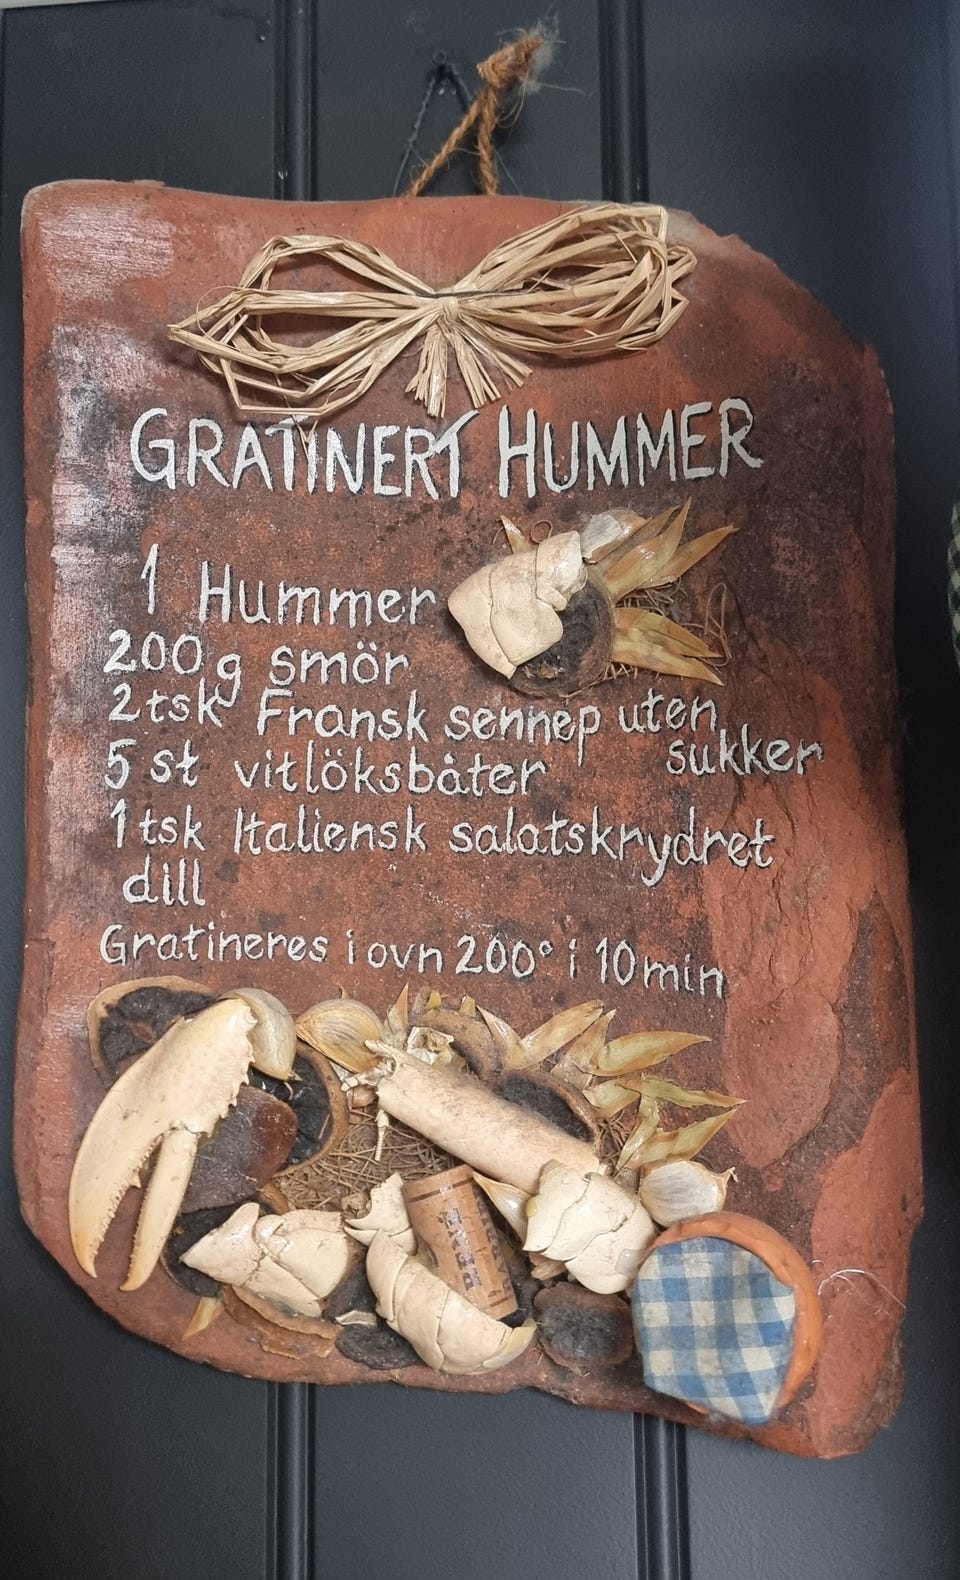 GRATINERT HUMMER
1 Hummer
200g smör
2 tsk Fransk sennep uten
sukker
5 st vitlöksbåter
1 tsk Italiensk salatskrydret
dill
Gratineres i ovn 200° i 10 min
RENÉ